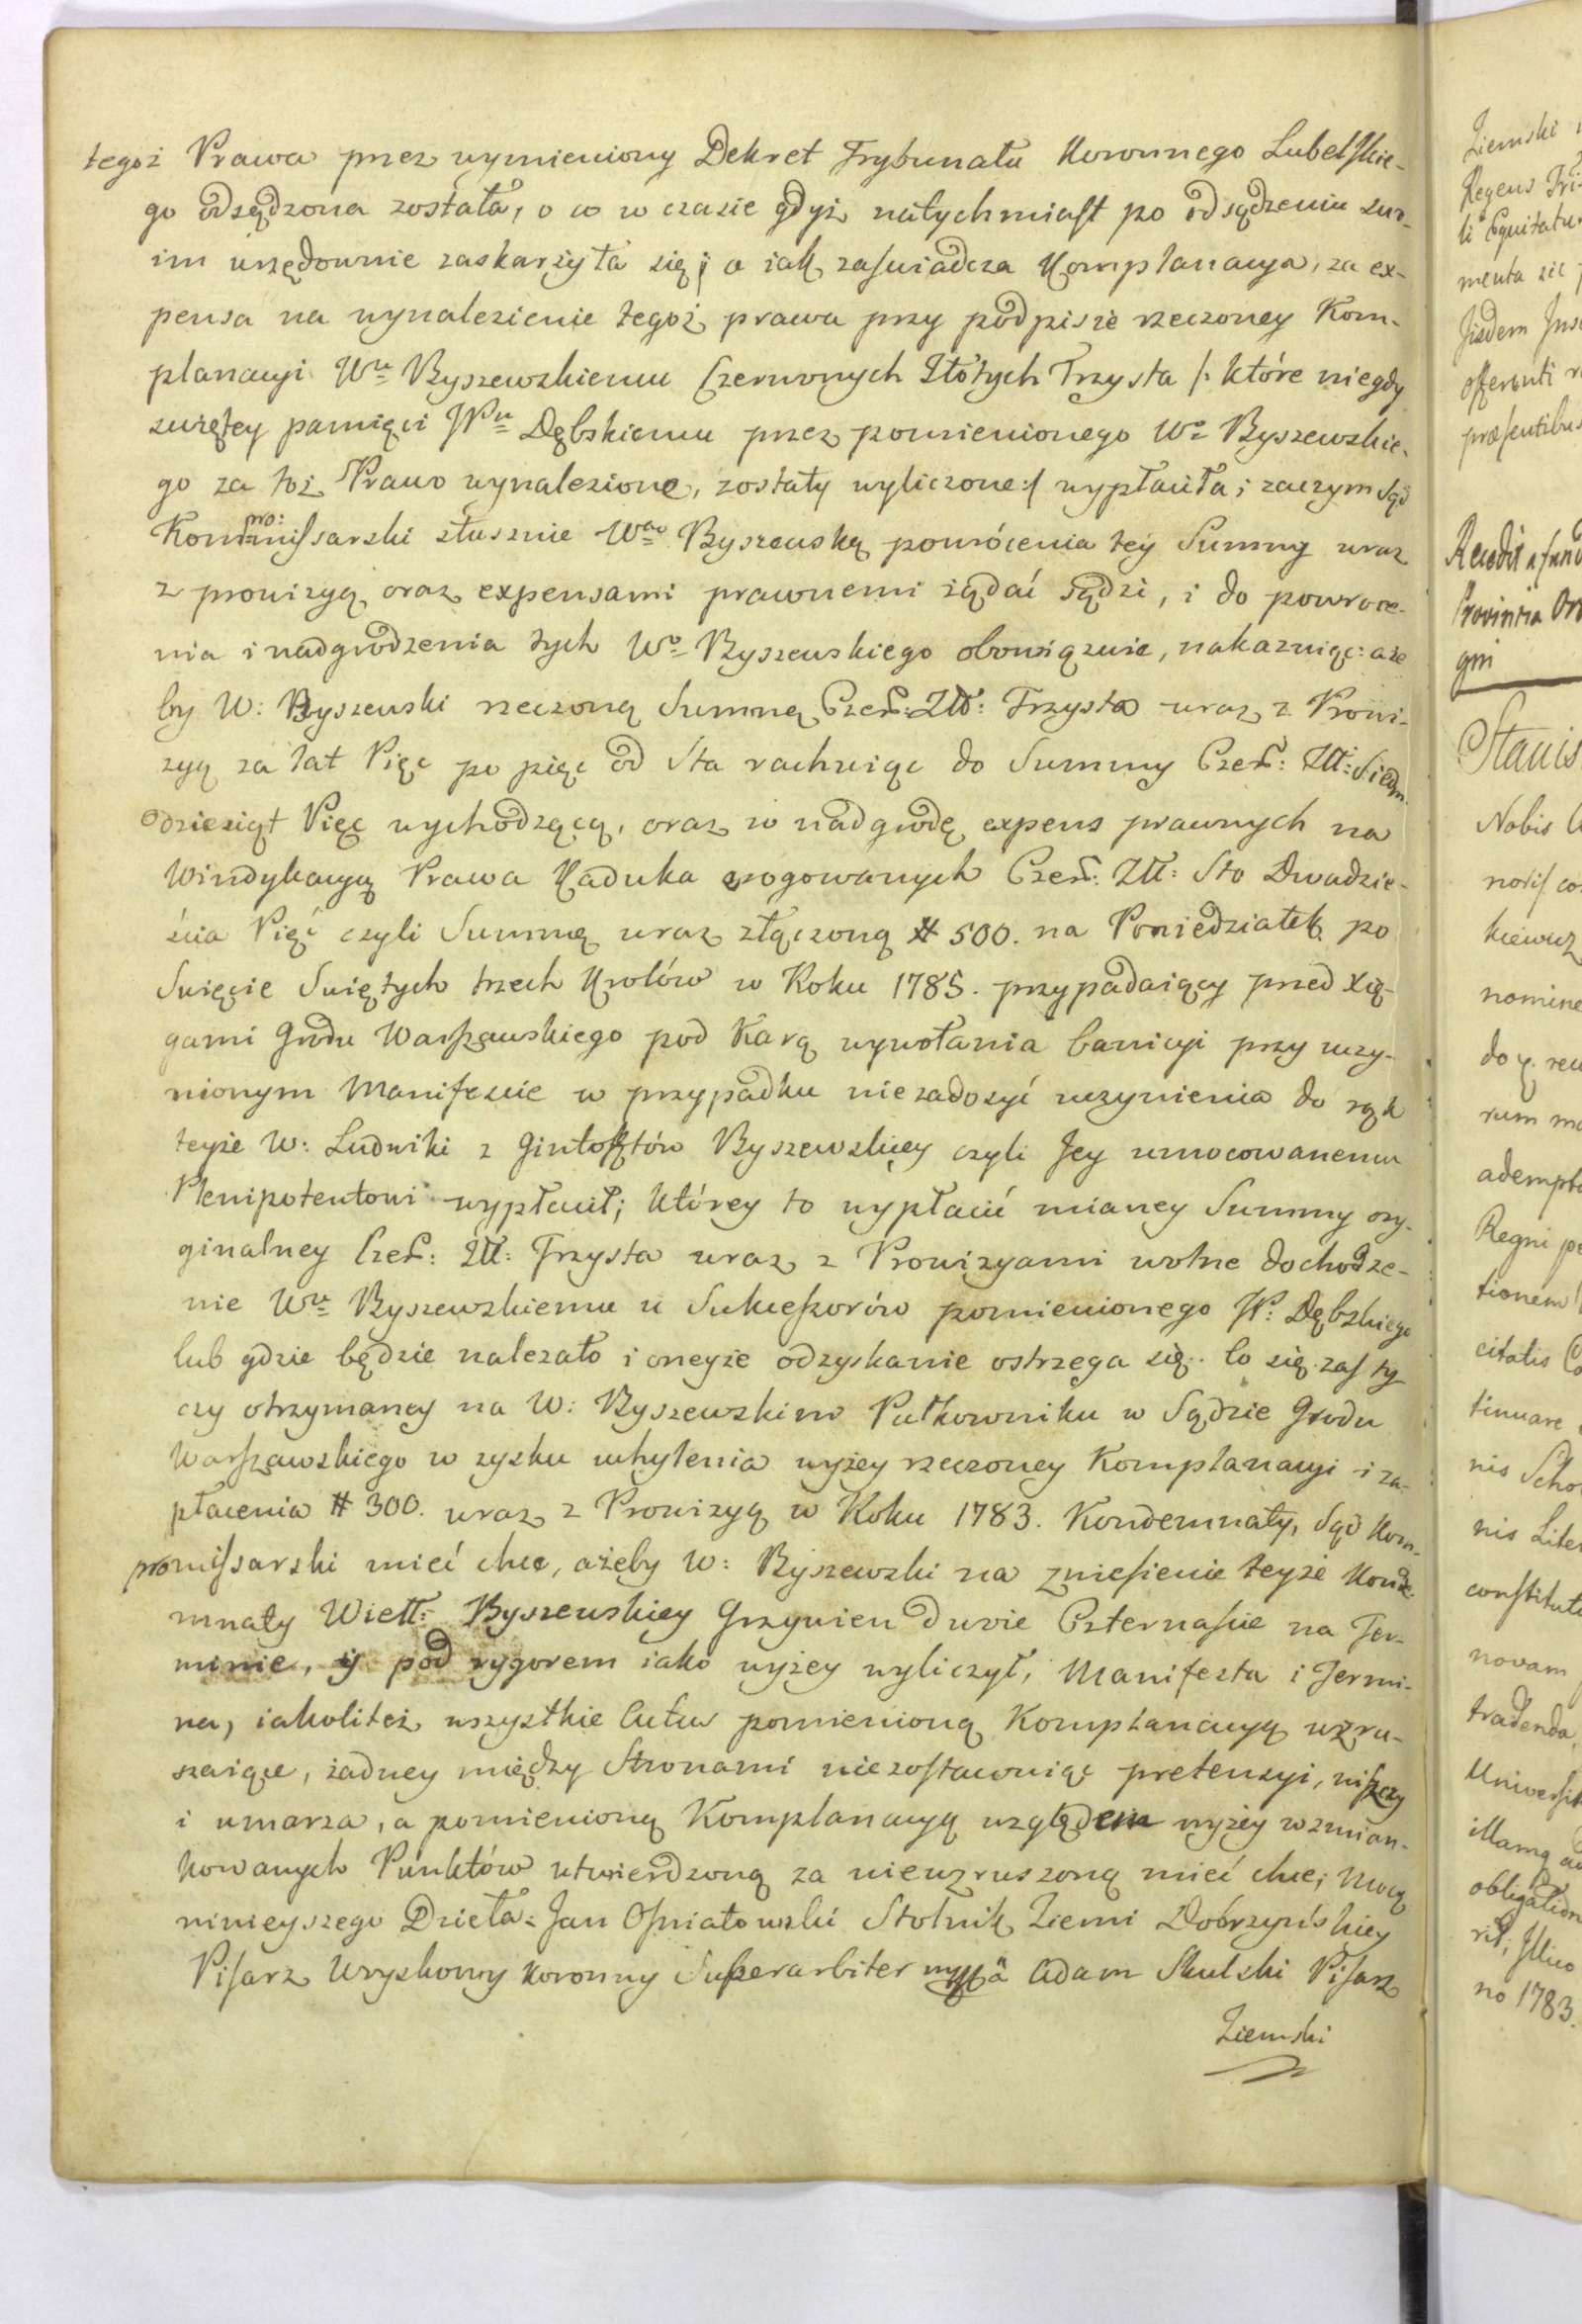 tegoż Prawa przez wymieniony Dekret Trybunału Koronnego Lubelskie-
go odsądzona została, o co w czasie gdyż natychmiast po odsądzeniu swo-
im urzędownie zaskarżyła się; a iak zaświadcza Komplanacya, za ex-
pensa na wynalezienie tegoż prawa przy podpisie rzeczoney Kom-
planacyi Wu Byszewskiemu Czerwonych Złotych Trzysta /: które niegdy
świętey pamięci JPu Dębskiemu przez pomienionego Wo Byszewskie-
go za toż Prawo wynalezione, zostały wyliczone :/ wypłaciła; zaczym Sąd
Kompromissarski słusznie Wą Byszewską powrócenia tey Summy wraz
z prowizyą oraz expensami prawnemi żądać sądzi, i do powroce-
nia i nadgrodzenia tych Wo Byszewskiego obowiązuie, nakazuiąc: aże
by W: Byszewski rzeczoną Summę Czer: Złł: Trzysta wraz z Prowi-
zyą za lat Pięc po pięc od Sta rachuiąc do Summy Czer: Złł: Siedm
dziesiąt Pięc wychodzącą, oraz w nadgrodę expens prawnych na
Windykacyą Prawa Kaduka łogowanych Czer: Złł: Sto Dwadzie-
ścia Pięć czyli Summę wraz złączoną # 500. na Poniedziałek po
Swięcie Swiętych trzech Krolów w Roku 1785. przypadaiący przed Xię-
gami Grodu Warszawskiego pod Karą wywołania banicyi przy uczy-
nionym Manifeście w przypadku niezadosyć uczynienia do rąk
teyże W: Ludwiki z Giełofztów Byszewskiey czyli Jey umocowanemu
Plenipotentowi wypłacił; którey to wypłacić mianey Summy ory-
ginalney Czer: Złł: Trzysta wraz z Prowizyami wolne dochodze-
nie Wu Byszewskiemu u Sukcessorów pomienionego JP: Dębskiego
lub gdzie będzie należało i oneyże odzyskanie ostrzega się. Co się zaś ty
czy otrzymaney na W: Byszewskim Pułkowniku w Sądzie Grodu
Warszawskiego w zysku uchylenia wyżey rzeczoney Komplanacyi i za-
płacenia # 300. wraz z Prowizyą w Roku 1783. Kondemnaty, Sąd Kom-
promissarski mieć chce, ażeby W: Byszewski na zniesienie teyże Konde-
mnaty Wielł: Byszewskiey Grzywien dwie Czternaście na Ter-
minie, y pod rygorem iako wyżey wyliczył, Manifesta i Termi-
na, iakoliteż wszystkie Actus pomienioną Komplanacyą wzru-
szaiące, żadney między Stronami niezostawuiąc pretensyi, niszczy
i umarza, a pomienioną Komplanacyą względem wyżey wzmian-
kowanych Punktów utwierdzoną za niewzruszoną mieć chce; Mocą
ninieyszego Dzieła. Jan Opiatowski Stolnik Ziemi Dobrzyńskiey
Pisarz Woyskowy Koronny Superarbiter mppa Adam Skulski Pisarz
Ziemski

Ziemski
Regens Tri-
li Equitatu
menta sic
offerenti
præsentibus
Recedit a fund
Provincia
gni
Stanis
Nobis
kiewicz
nomine
rum
adempt
Regni pe
tionem
citatis
tinuare
nis Scho
nis Liter
constitut
novam
tradenda
Universit
illamq
obligation
no 1783.